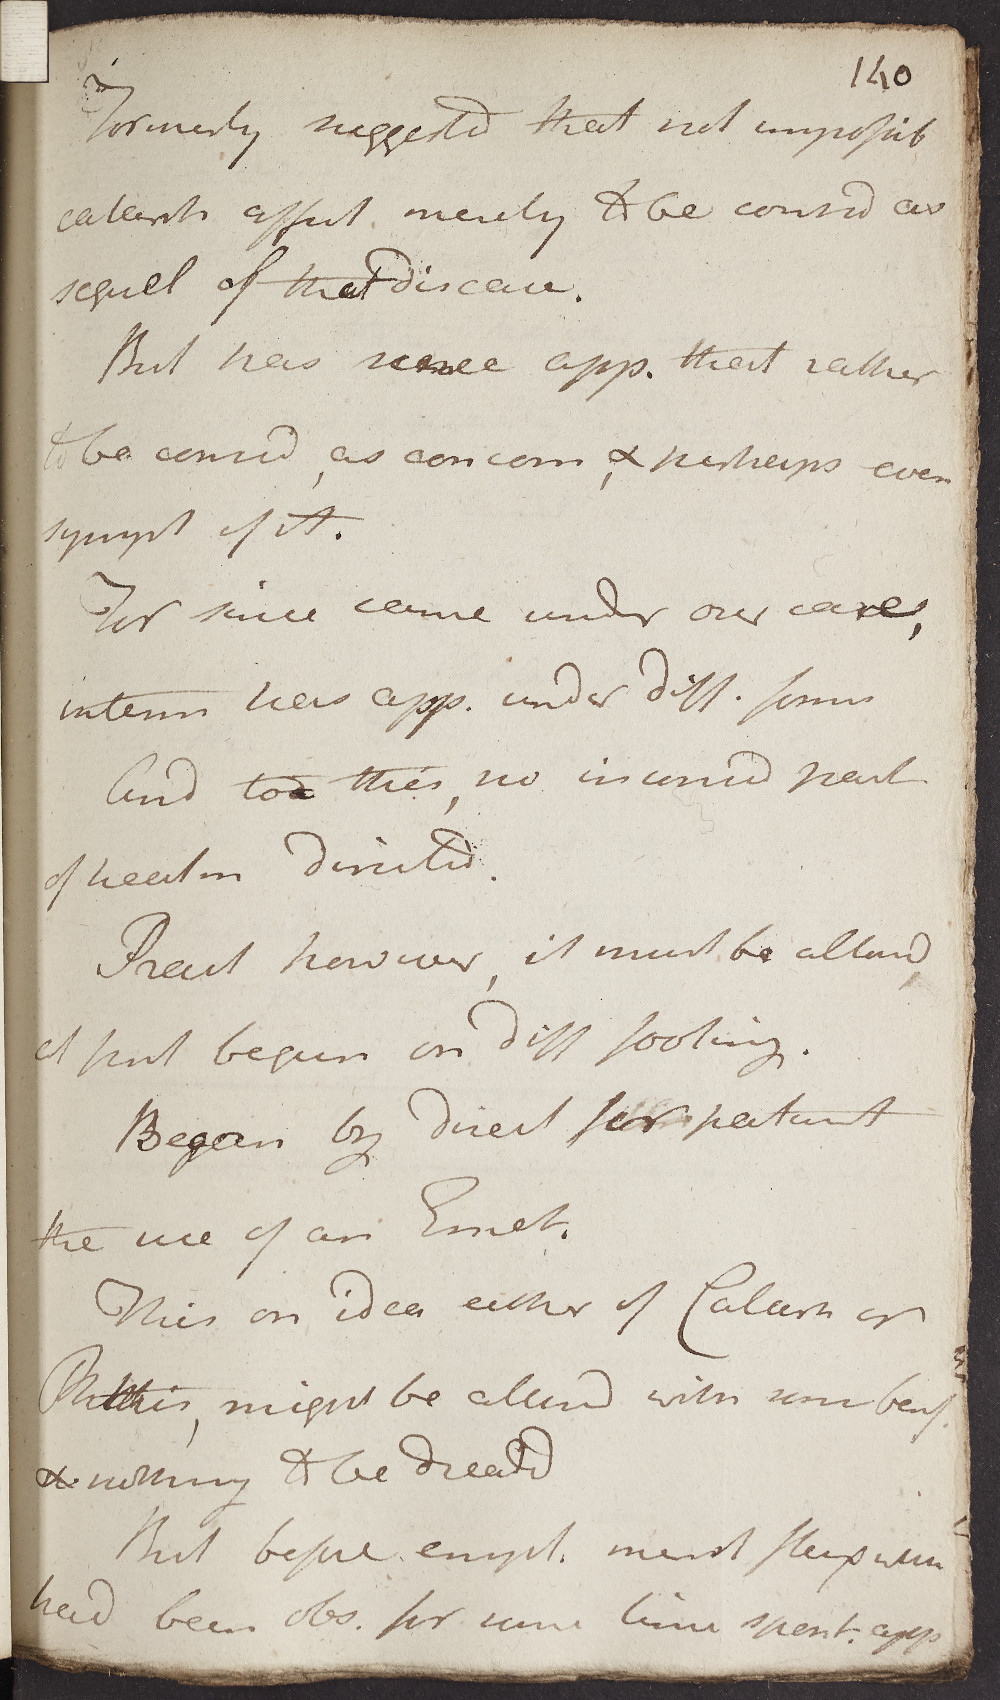 140
Formerly suggestd that not impossib
catarrh affect. merely to be consid as
sequel of that disease.
But has since app. that rather
to be consid, as concom, & perhaps even
sympt of it.
For since came under our care,
interm has app. under diff. forms
And to this, no inconsid part
of treatm directd.
Pract however, it must be allowd,
at first begun on diff footing.
Began by direct for patient
the use of an Emet.
This on idea either of Catarrh or
Phthis, might be allowd with some benef.
& nothing to be dreadd
But before empl. medt
had been obs. for some time spont. app